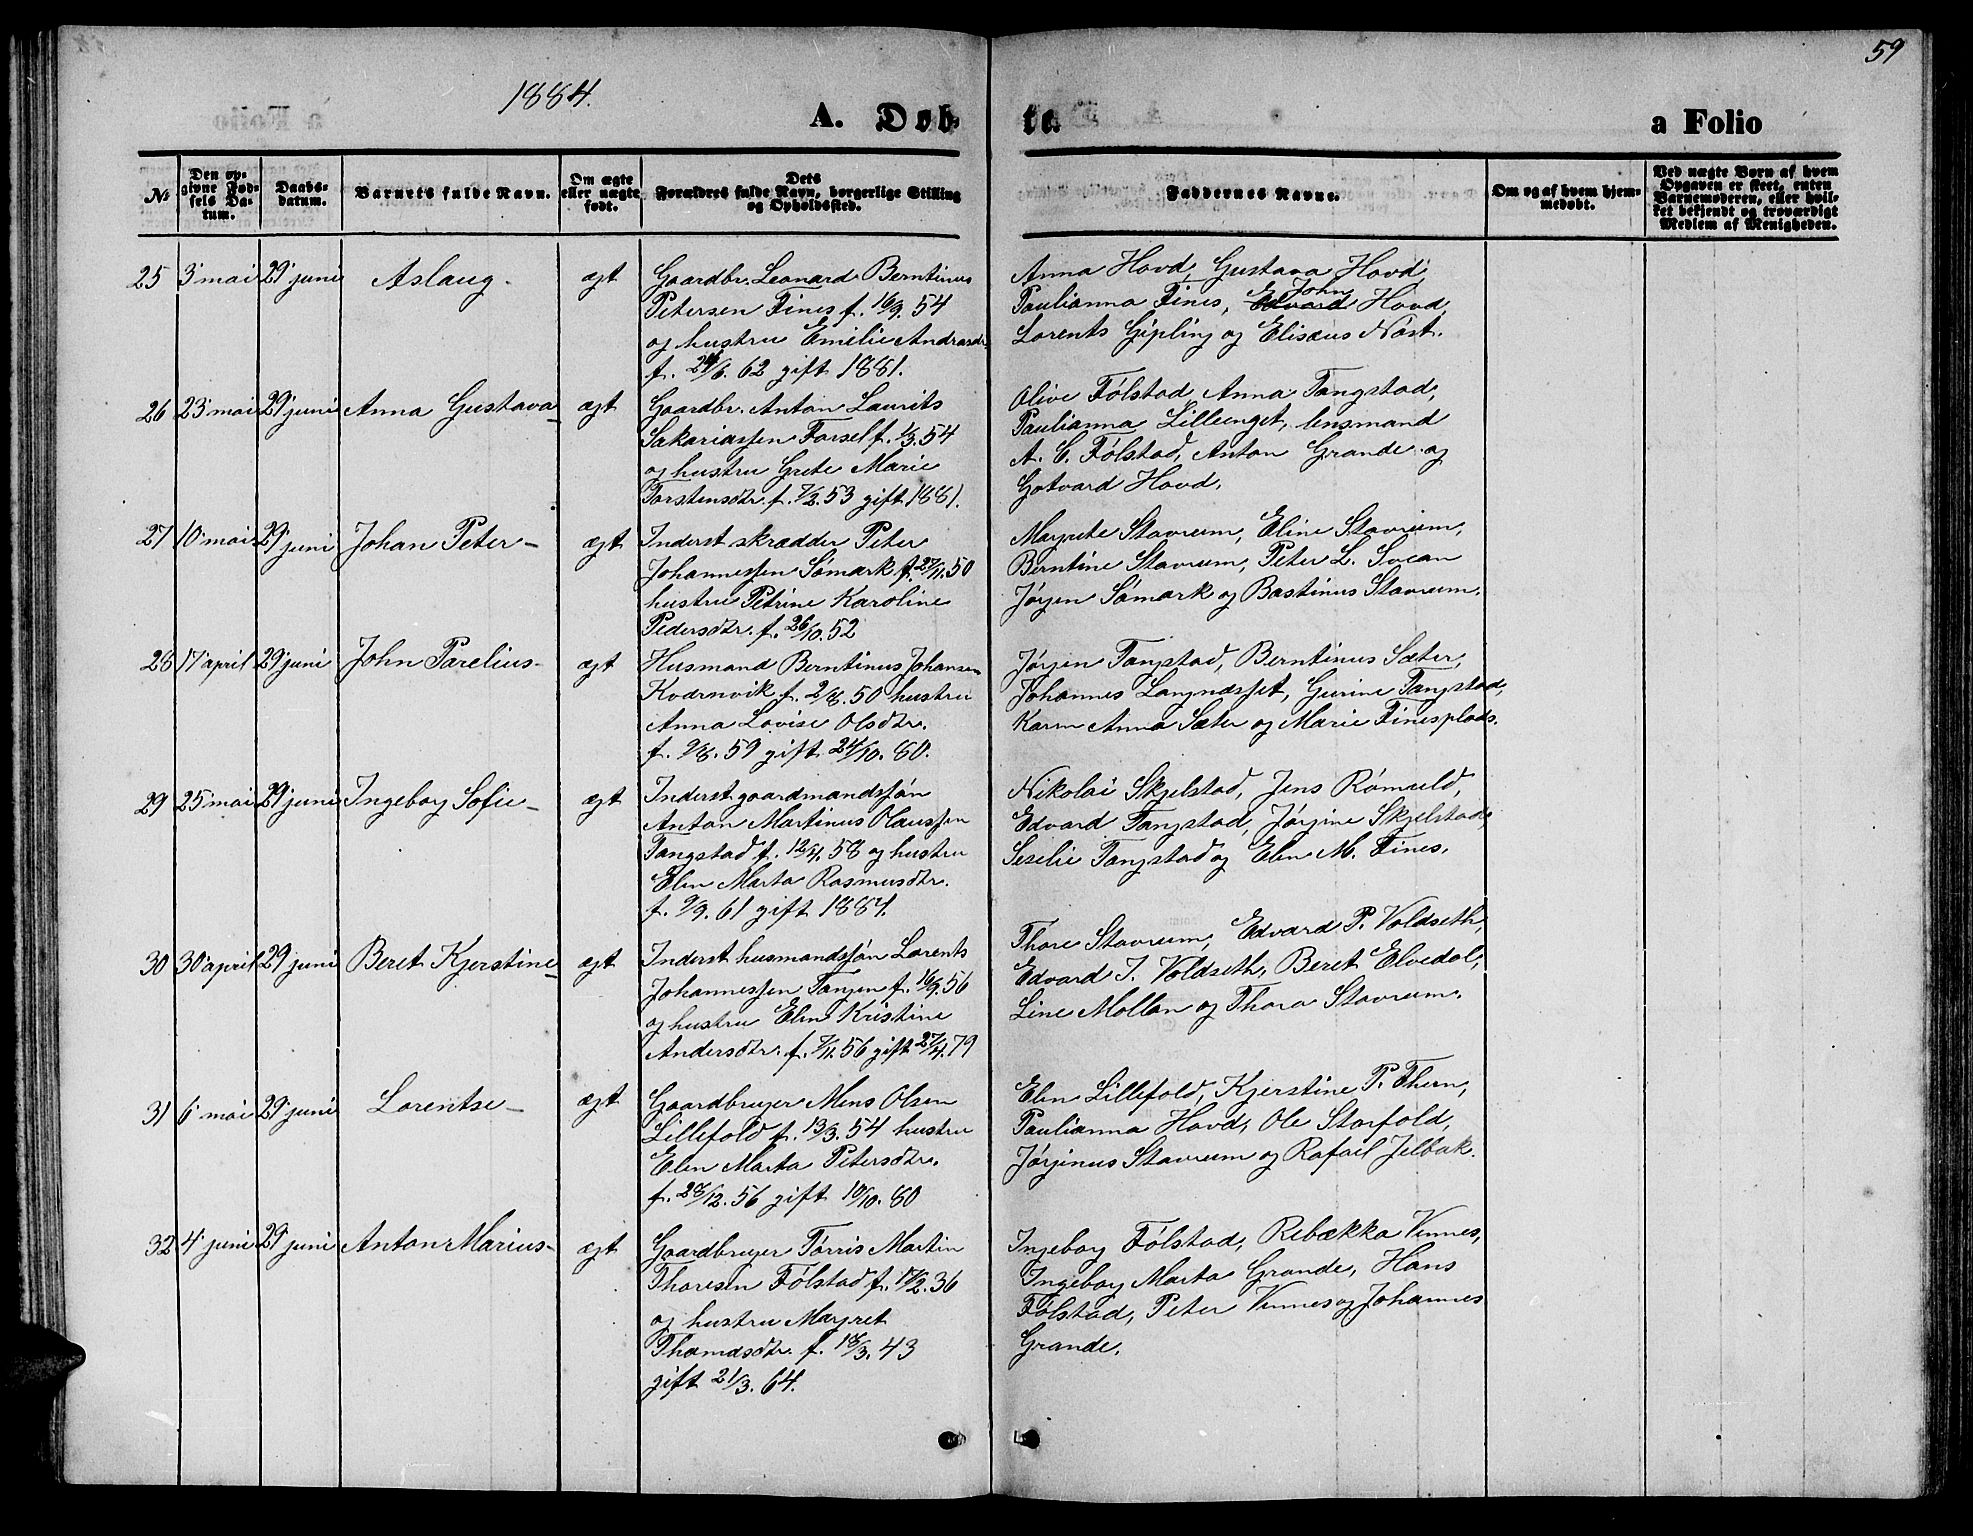 59
1884.
A. Døb-
te.
a Folio
№
Den op-
givne Fød-
sels Da-
tum.
Daabs-
datum.
Barnets fulde Navn.
Om ægte
eller uægte
født.
Dets
Forældres fulde Navn, borgerlige Stilling
og Opholdssted.
Faddernes Navne.
Om og af hvem hjem-
medøbt.
Ved uægte Børn af hvem
Opgaven er skeet, enten
Barnemoderen, eller hvil-
ket bekjendt og troværdigt
Medlem af Menigheden.
25 3' mai 29' juni Aslaug. ægt
Gaardbr. Leonard Berntinus
Petersen Fines f. 16/9. 54
og hustru Emilie Andreasdr.
f. 24/6. 62 gift 1881.
Anna Hovd, Gustava Hovd,
Paulianna Fines, Edvard E. John Hovd,
Lorents Gipling og Elisæus Nøst.
26 23' mai 29' juni Anna Gustava ægt
Gaardbr. Anton Laurits
Sakariassen Forsel f. 1/3. 54
og hustru Grete Marie
Torstensdtr. f. 7/2. 53 gift 1881.
Olive Følstad, Anna Tangstad,
Paulianna Lilleenget, lensmand
A. C. Følstad, Anton Grande og
Gotvard Hovd.
27 10' mai 29' juni Johan Peter ægt
Inderst skrædder Peter
Johannessen Sømark f. 27/11. 50
hustru Petrine Karoline
Pedersdtr. f. 26/10. 52
Margrete Stavrum, Eline Stavrum,
Berntine Stavrum, Peter L. Svean
Jørgen Sømark og Bastinus Stavrum.
28 17' april 29' juni John Parelius ægt
Husmand Berntinus Johansen
Kværnvik f. 2/8. 50 hustru
Anna Lovise Olsdtr.
f. 9/8. 59 gift 24/10. 80.
Jørgen Tangstad, Berntinus Sæter,
Johannes Langnæsset, Gurine Tangstad,
Karen Anna Sæter og Marie Finesplads.
29 25' mai 29' juni Ingeborg Sofie ægt
Inderst gaardmandssøn
Anton Martinus Olaussen
Tangstad f. 12/4. 58 og hustru
Elen Marta Rasmusdtr.
f. 9/9. 61 gift 1884.
Nikolai Skjelstad, Jens Rømuld,
Edvard Tangstad, Jørgine Skjelstad,
Seselie Tangstad og Elen M. Fines.
30 30' april 29' juni Beret Kjerstine ægt
Inderst husmandssøn Lorents
Johannessen Tangen f. 16/9. 56
og hustru Elen Kristine
Andersdtr. f. 7/11. 56 gift 27/4. 79
Thore Stavrum, Edvard P. Voldseth,
Edvard J. Voldseth, Beret Elvedal,
Line Mollan og Thora Stavrum.
31 6' mai 29' juni Lorentse ægt
Gaardbruger Mens Olsen
Lillefold f. 13/3. 54 hustru
Elen Marta Petersdtr.
f. 28/12. 56 gift 10/10. 80
Elen Lillefold, Kjerstine P. Thern,
Paulianna Hovd, Ole Storfold,
Jørginus Stavrum og Rafael Jelbak.
32 4' juni 29' juni Anton Marius ægt
Gaardbruger Tørris Martin
Thoresen Følstad f. 17/2. 36
og hustru Margret
Thomasdtr. f. 18/3. 43
gift 21/3. 64.
Ingeborg Følstad, Rebækka Vinnes,
Ingeborg Marta Grande, Hans
Følstad, Peter Vinnes og Johannes
Grande.